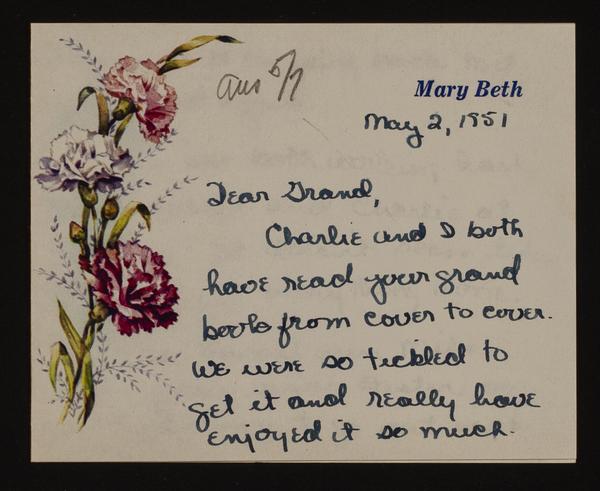 ans 5/7
Mary Beth
May 2, 1951
Dear Grand,
Charlie and I both
have read your grand
book from cover to cover.
We were so tickled to
get it and really have
enjoyed it so much.